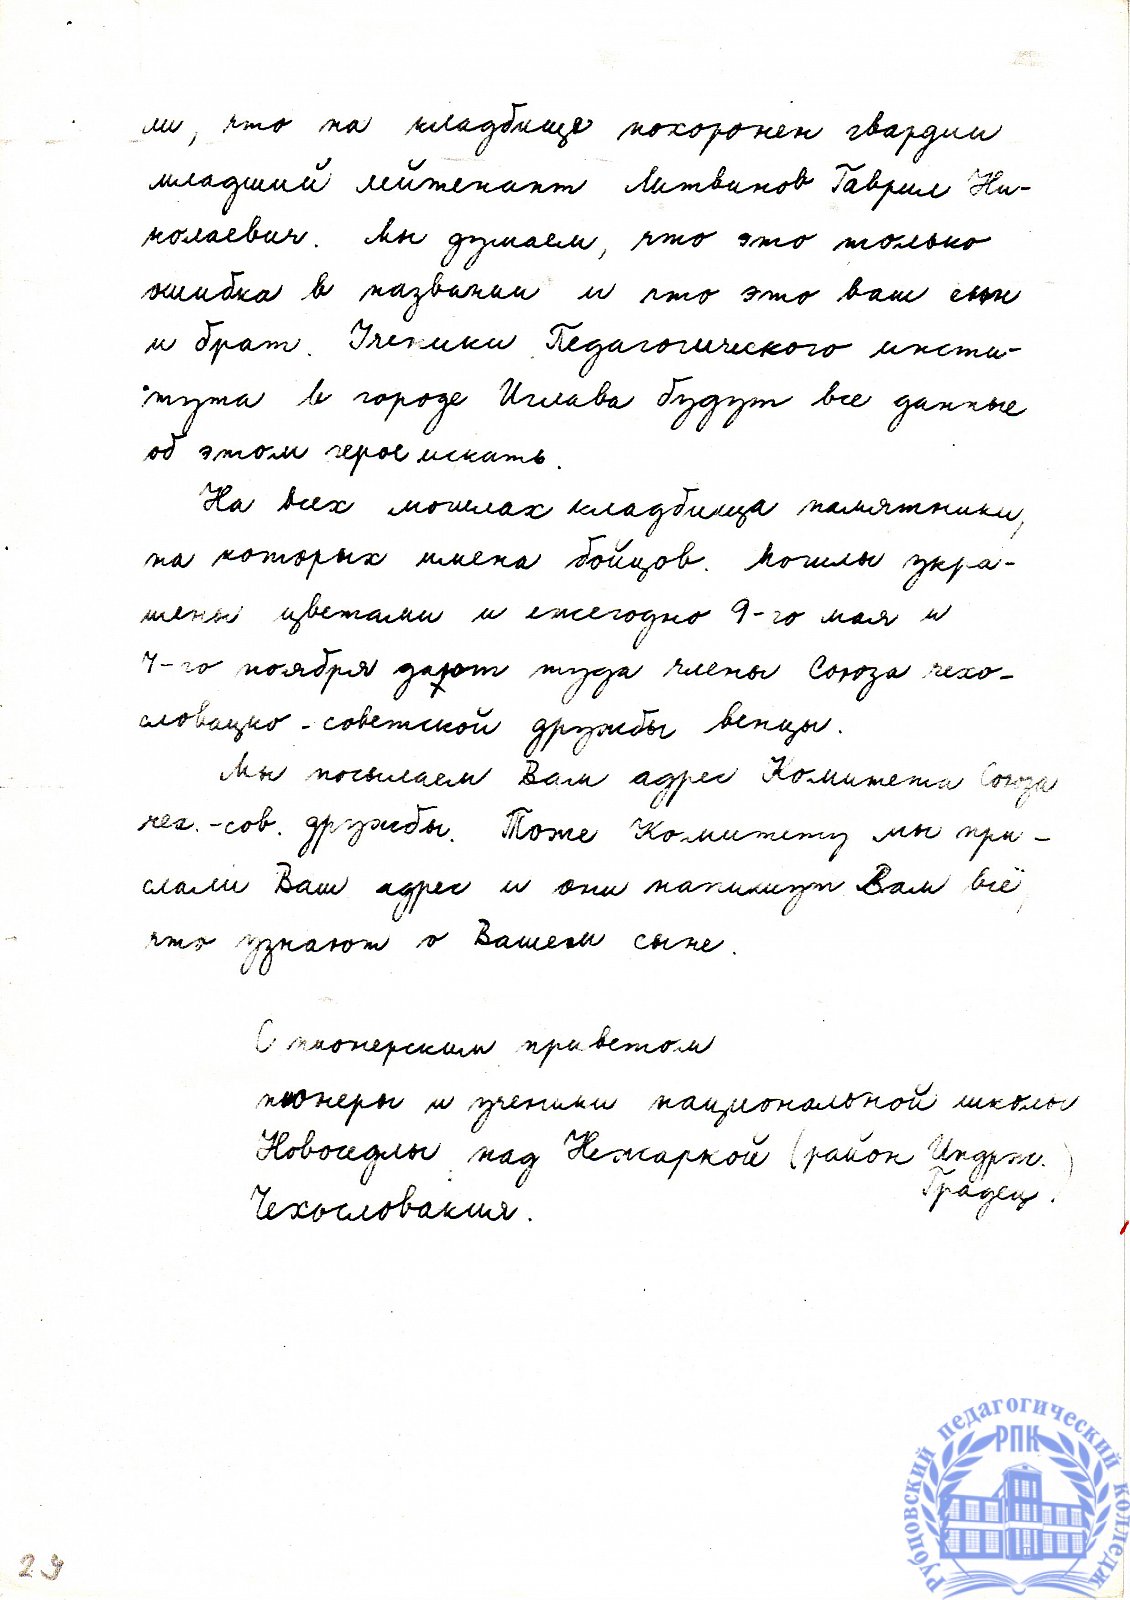 ли, что на кладбище похоронен гвардии
младший лейтенант Литвинов Гаврил Ни-
колаевич. Мы думаем, что это только
ошибка в названии и что это ваш сын
и брат. Ученики Педагогического инсти-
тута в городе Иглава будут все данные
об этом герое искать.
На всех могилах кладбища памятники,
на которых имена бойцов. Могилы укра-
шены цветами и ежегодно 9-го мая и
7-го ноября дают туда члены Союза чехо-
словацко-советской дружбы венцы.
Мы посылаем Вам адрес Комитета Союза
чех.-сов. дружбы. Тоже Комитету мы при-
слали Ваш адрес и они напишут Вам всё,
что узнают о Вашем сыне.
С пионерским приветом
пионеры и ученики национальной школы
Новоседлы над Нежаркой (район Индрж.
Градец.)
Чехословакия.
29
Рубцовский педагогический колледж
РПК